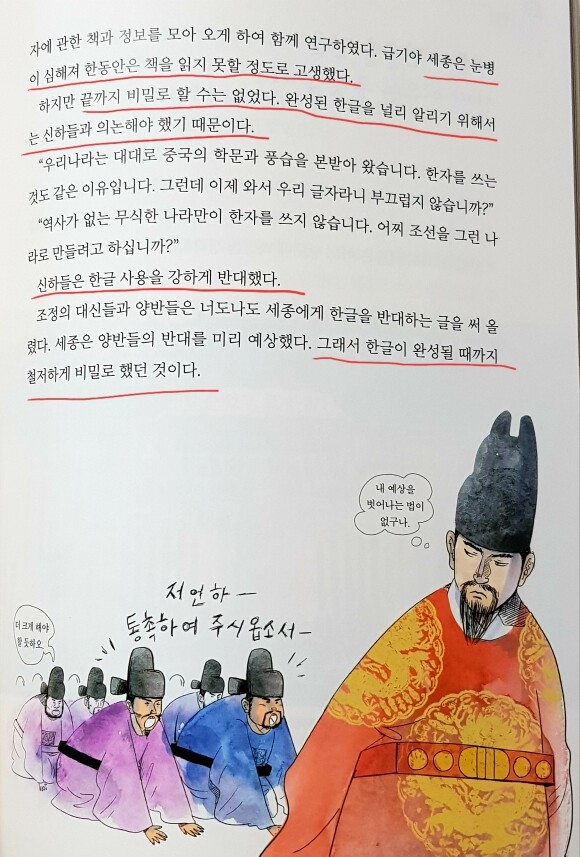 자에 관한 책과 정보를 모아 오게 하여 함께 연구하였다. 급기야 세종은 눈병
이 심해져 한동안은 책을 읽지 못할 정도로 고생했다.
하지만 끝까지 비밀로 할 수는 없었다. 완성된 한글을 널리 알리기 위해서
는 신하들과 의논해야 했기 때문이다.
“우리나라는 대대로 중국의 학문과 풍습을 본받아 왔습니다. 한자를 쓰는
것도 같은 이유입니다. 그런데 이제 와서 우리 글자라니 부끄럽지 않습니까?”
“역사가 없는 무식한 나라만이 한자를 쓰지 않습니다. 어찌 조선을 그런 나
라로 만들려고 하십니까?”
신하들은 한글 사용을 강하게 반대했다.
조정의 대신들과 양반들은 너도나도 세종에게 한글을 반대하는 글을 써 올
렸다. 세종은 양반들의 반대를 미리 예상했다. 그래서 한글이 완성될 때까지
철저하게 비밀로 했던 것이다.
내 예상을
벗어나는 법이
없구나.
저언하―
통촉하여 주시옵소서―
더 크게 해야
할 듯하오.